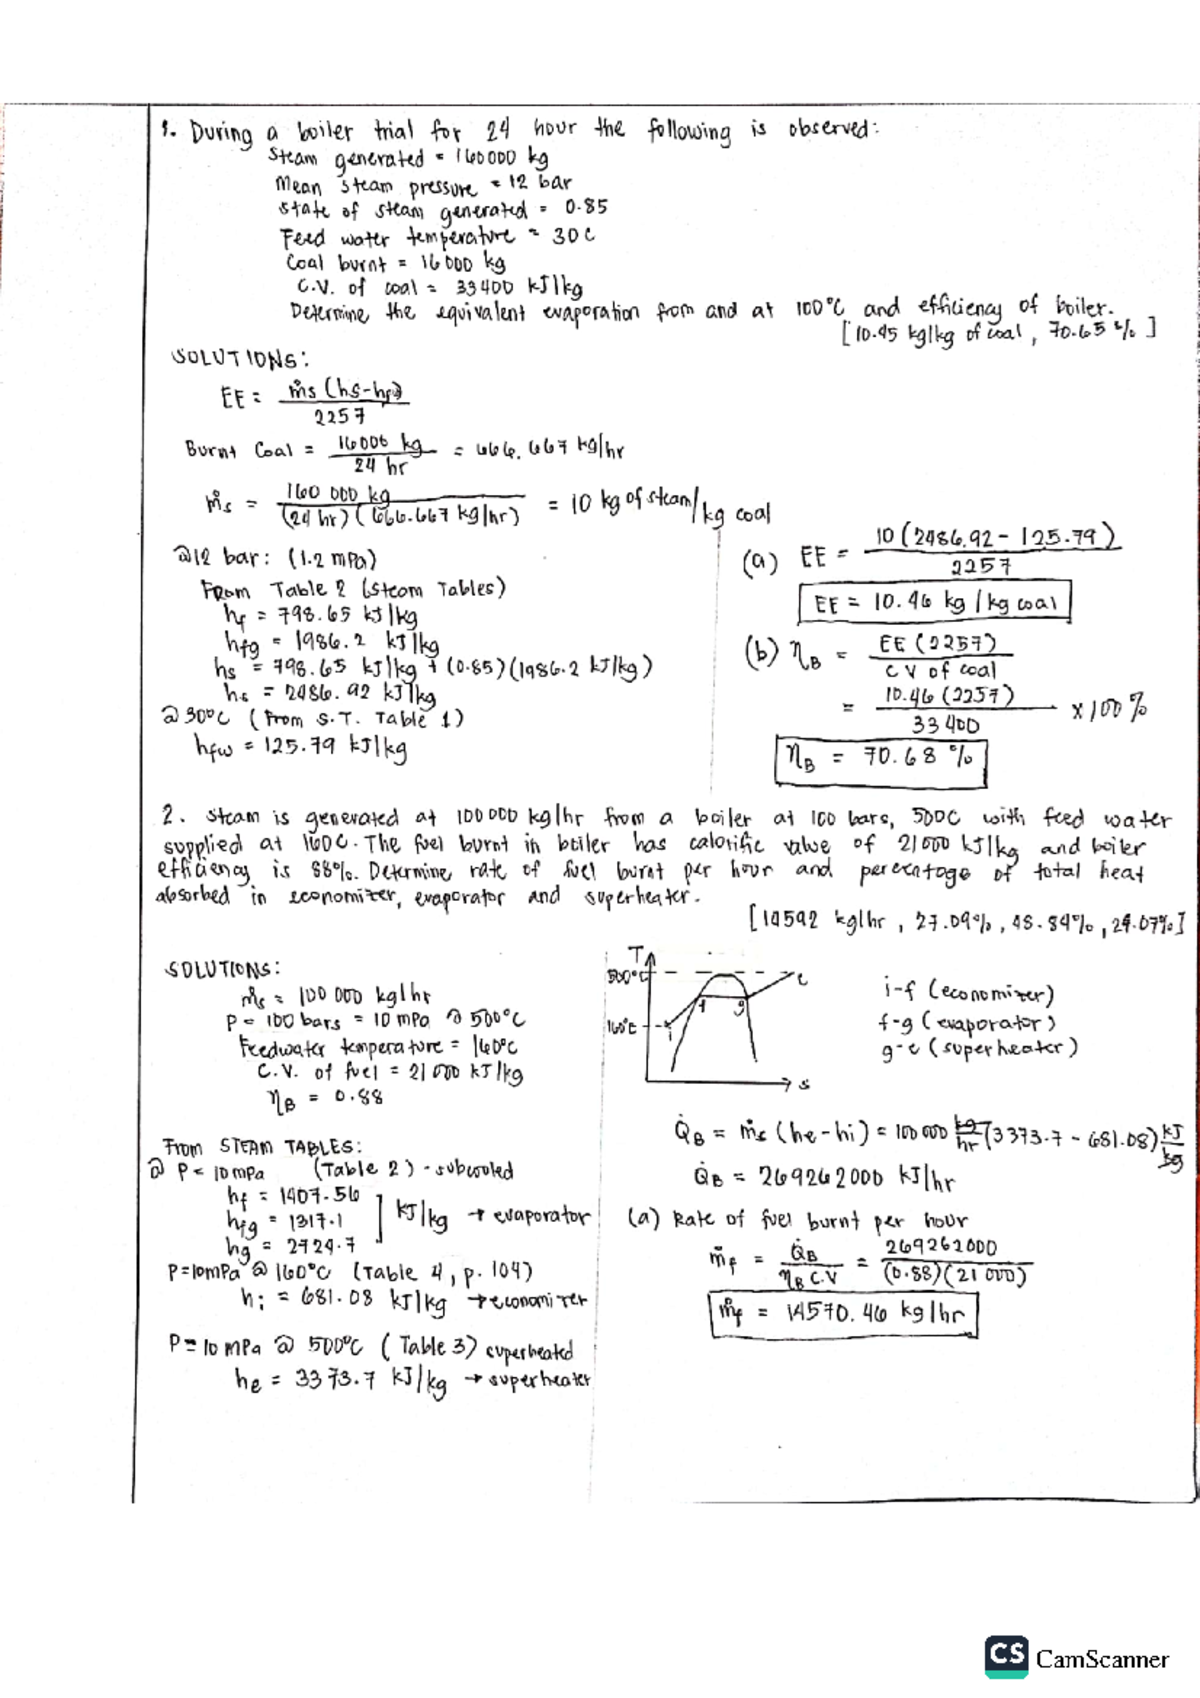 1. During a boiler trial for 24 hour the following is observed:
Steam generated = 160000 kg
Mean steam pressure = 12 bar
state of steam generated = 0.85
Feed water temperature = 30C
Coal burnt = 16000 kg
C.V. of coal = 33400 kJ/kg
Determine the equivalent evaporation from and at 100°C and efficiency of boiler.
[10.45 kg/kg of coal, 70.65 %]
SOLUTIONS:
EE = ṁs (hs-hf)
2257
Burnt Coal = 16000 kg / 24 hr = 666.667 kg/hr
ṁs = 160 000 kg / (24 hr)(666.667 kg/hr) = 10 kg of steam/kg coal
@12 bar: (1.2 mPa)
From Table 2 (Steam Tables)
hf = 798.65 kJ/kg
hfg = 1986.2 kJ/kg
hs = 798.65 kJ/kg + (0.85)(1986.2 kJ/kg)
hs = 2486.92 kJ/kg
@30°C (From S.T. Table 1)
hfw = 125.79 kJ/kg
(a) EE = 10(2486.92 - 125.79)
2257
EE = 10.46 kg/kg coal
(b) ηB = EE(2257)
CV of coal
= 10.46(2257) / 33400 x100%
ηB = 70.68 %
2. Steam is generated at 100000 kg/hr from a boiler at 100 bars, 500C with feed water
supplied at 160C. The fuel burnt in boiler has calorific value of 21000 kJ/kg and boiler
efficiency is 88%. Determine rate of fuel burnt per hour and percentage of total heat
absorbed in economizer, evaporator and superheater.
[14592 kg/hr, 27.09%, 48.84%, 24.07%]
SOLUTIONS:
ṁs = 100 000 kg/hr
P = 100 bars = 10 mPa @ 500°C
Feedwater temperature = 160°C
C.V. of fuel = 21 000 kJ/kg
ηB = 0.88
From STEAM TABLES:
@ P = 10mPa (Table 2) - subcooled
hf = 1407.56
hfg = 1317.1 ] kJ/kg → evaporator
hg = 2724.7
P=10mPa @ 160°C (Table 4, p. 104)
hi = 681.08 kJ/kg → economizer
P = 10 mPa @ 500°C (Table 3) superheated
he = 3373.7 kJ/kg → superheater
T
500°C
e
f g
160°C
i
s
i-f (economizer)
f-g (evaporator)
g-e (superheater)
Q̇B = ṁs (he-hi) = 100 000 kg/hr (3373.7 - 681.08) kJ/kg
Q̇B = 269262000 kJ/hr
(a) Rate of fuel burnt per hour
ṁf = Q̇B / ηB C.V = 269262000 / (0.88)(21 000)
ṁf = 14570.46 kg/hr
CS CamScanner